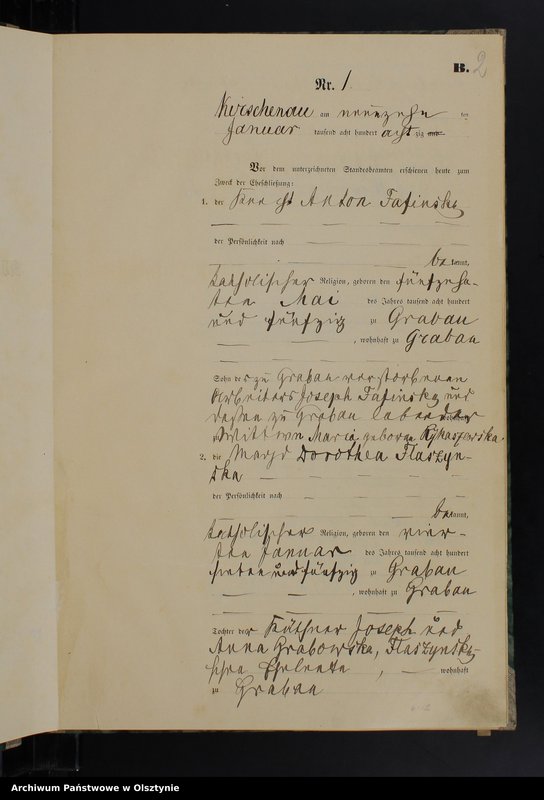 B. 2
Nr. 1
Kirschenau am neunzehn ten
Januar tausend acht hundert achtzig
Vor dem unterzeichneten Standesbeamten erschienen heute zum
Zweck der Eheschließung:
1. der Knecht Anton Tafinsky
der Persönlichkeit nach
bekannt,
katholischer Religion, geboren den fünfzehn-
ten Mai des Jahres tausend acht hundert
und fünfzig zu Grabau
, wohnhaft zu Grabau
Sohn des zu Grabau verstorbenen
Arbeiters Joseph Tafinsky und
dessen zu Grabau lebender
Wittwe Maria geborne Rykaszewska.
2. die Magd Dorothea Flaszyn-
ska
der Persönlichkeit nach
bekannt,
katholischer Religion, geboren den vier-
ten Januar des Jahres tausend acht hundert
sieben und fünfzig zu Grabau
, wohnhaft zu Grabau
Tochter der Käthner Joseph und
Anna Grabowska, Flaszynsky-
schen Eheleute, wohnhaft
zu Grabau
Archiwum Państwowe w Olsztynie